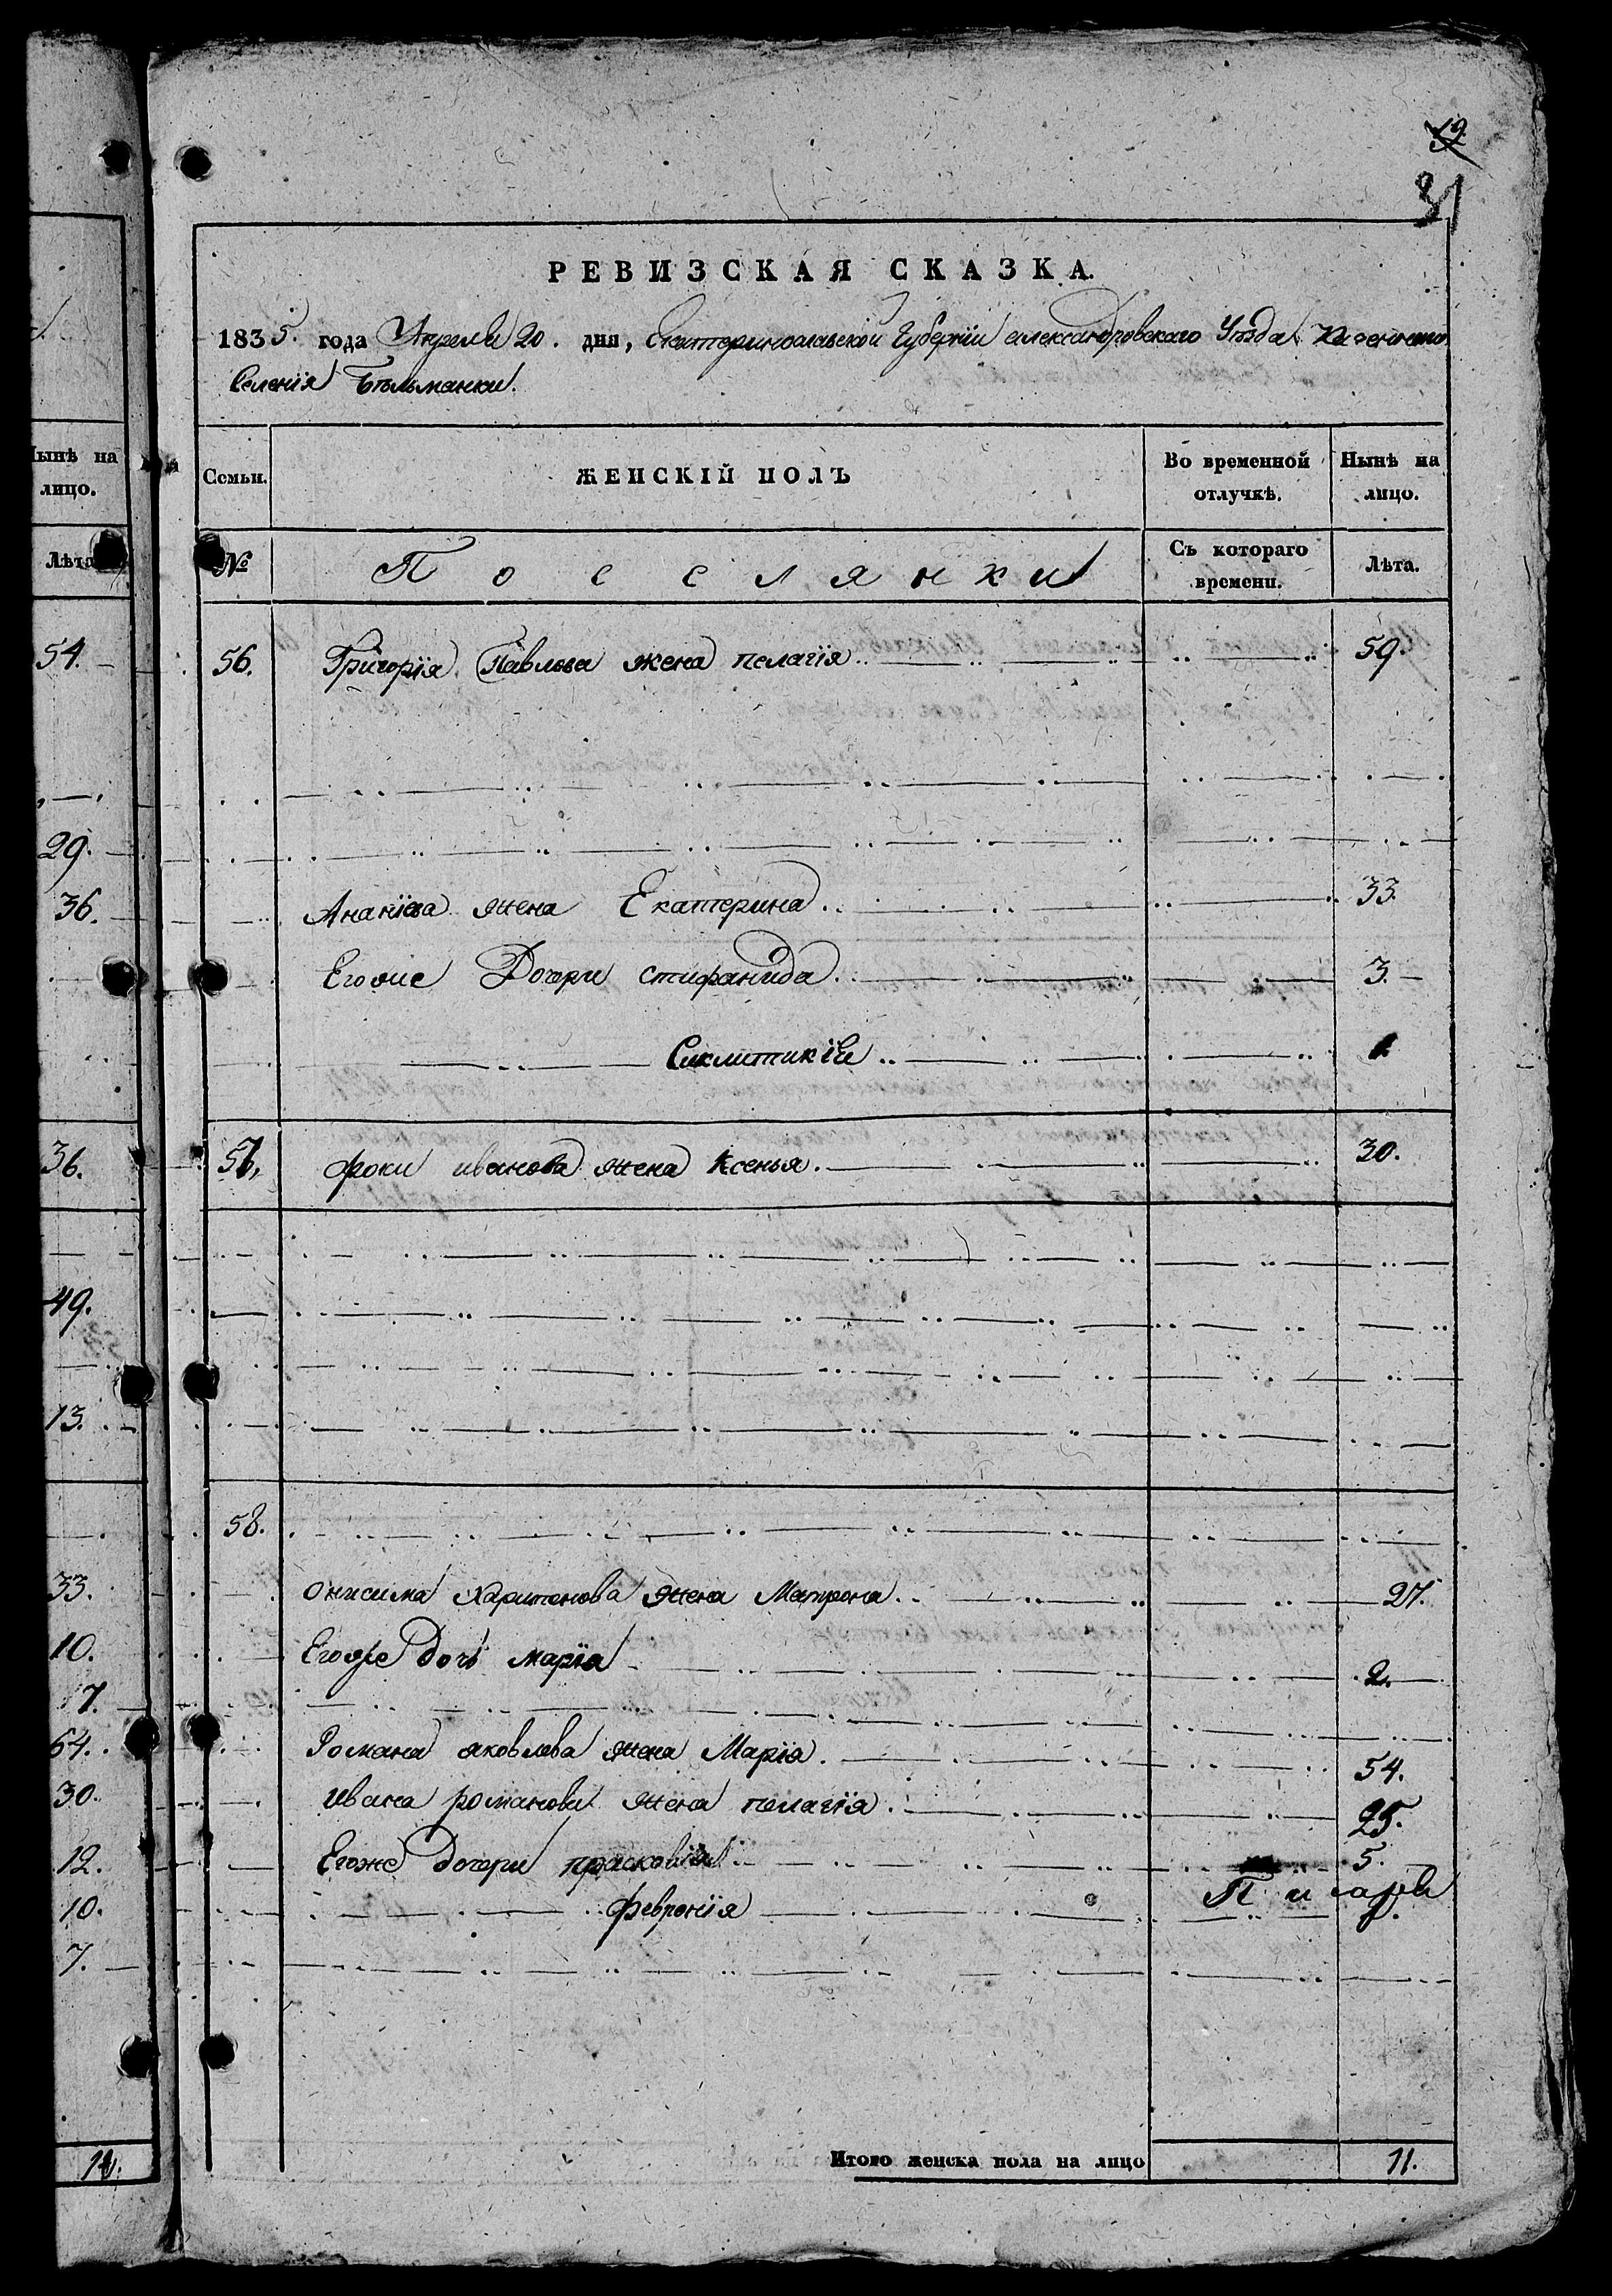 19.
31
РЕВИЗСКАЯ СКАЗКА.
1835. года Апреля 20. дня, Екатеринославской Губернїи александровскаго Уѣзда Казенного
Селенїя Бѣльманки.
Нынѣ на
лицо.
Лѣта
54.
29.
36.
36.
49.
13.
33.
10.
7.
64.
30.
12.
10.
7.
14.
Семьи. ЖЕНСКІЙ ПОЛЪ Во временной отлучкѣ. Нынѣ на лицо.
№ Поселянки Съ котораго времени. Лѣта.
56. Григорїя Павлова жена пелагїя 59.
Ананїева жена Екатерина 33.
Егоже Дочери стифанида 3.
Сиклитикїя
57. фоки иванова жена Ксенья. 30.
58.
онисима Харитонова жена Матрона. 27.
Егоже дочь марїа 2.
Романа яковлева жена Марїа. 54.
Ивана романова жена пелагїя. 25.
Егоже дочери прасковїя 5.
Писарь
феврснїя
Итого женска пола на лицо 11.